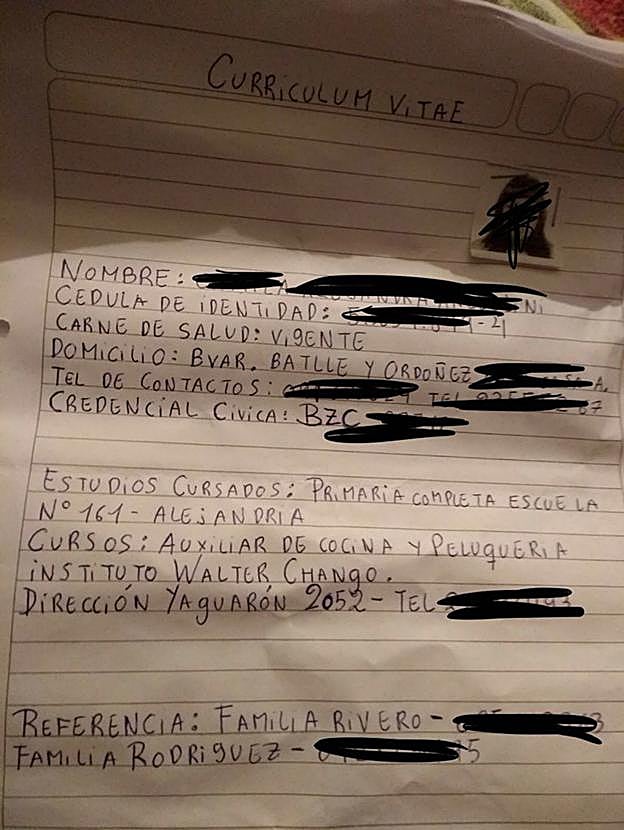 CURRICULUM VITAE
NOMBRE:
CEDULA DE IDENTIDAD:
CARNE DE SALUD: VIGENTE
DOMICILIO: BVAR. BATLLE Y ORDOÑEZ
TEL DE CONTACTOS: TEL
CREDENCIAL CIVICA: BZC
ESTUDIOS CURSADOS: PRIMARIA COMPLETA ESCUELA
Nº 161 - ALEJANDRIA
CURSOS: AUXILIAR DE COCINA Y PELUQUERIA
INSTITUTO WALTER CHANGO.
DIRECCIÓN YAGUARÓN 2052 - TEL
REFERENCIA: FAMILIA RIVERO -
FAMILIA RODRIGUEZ -